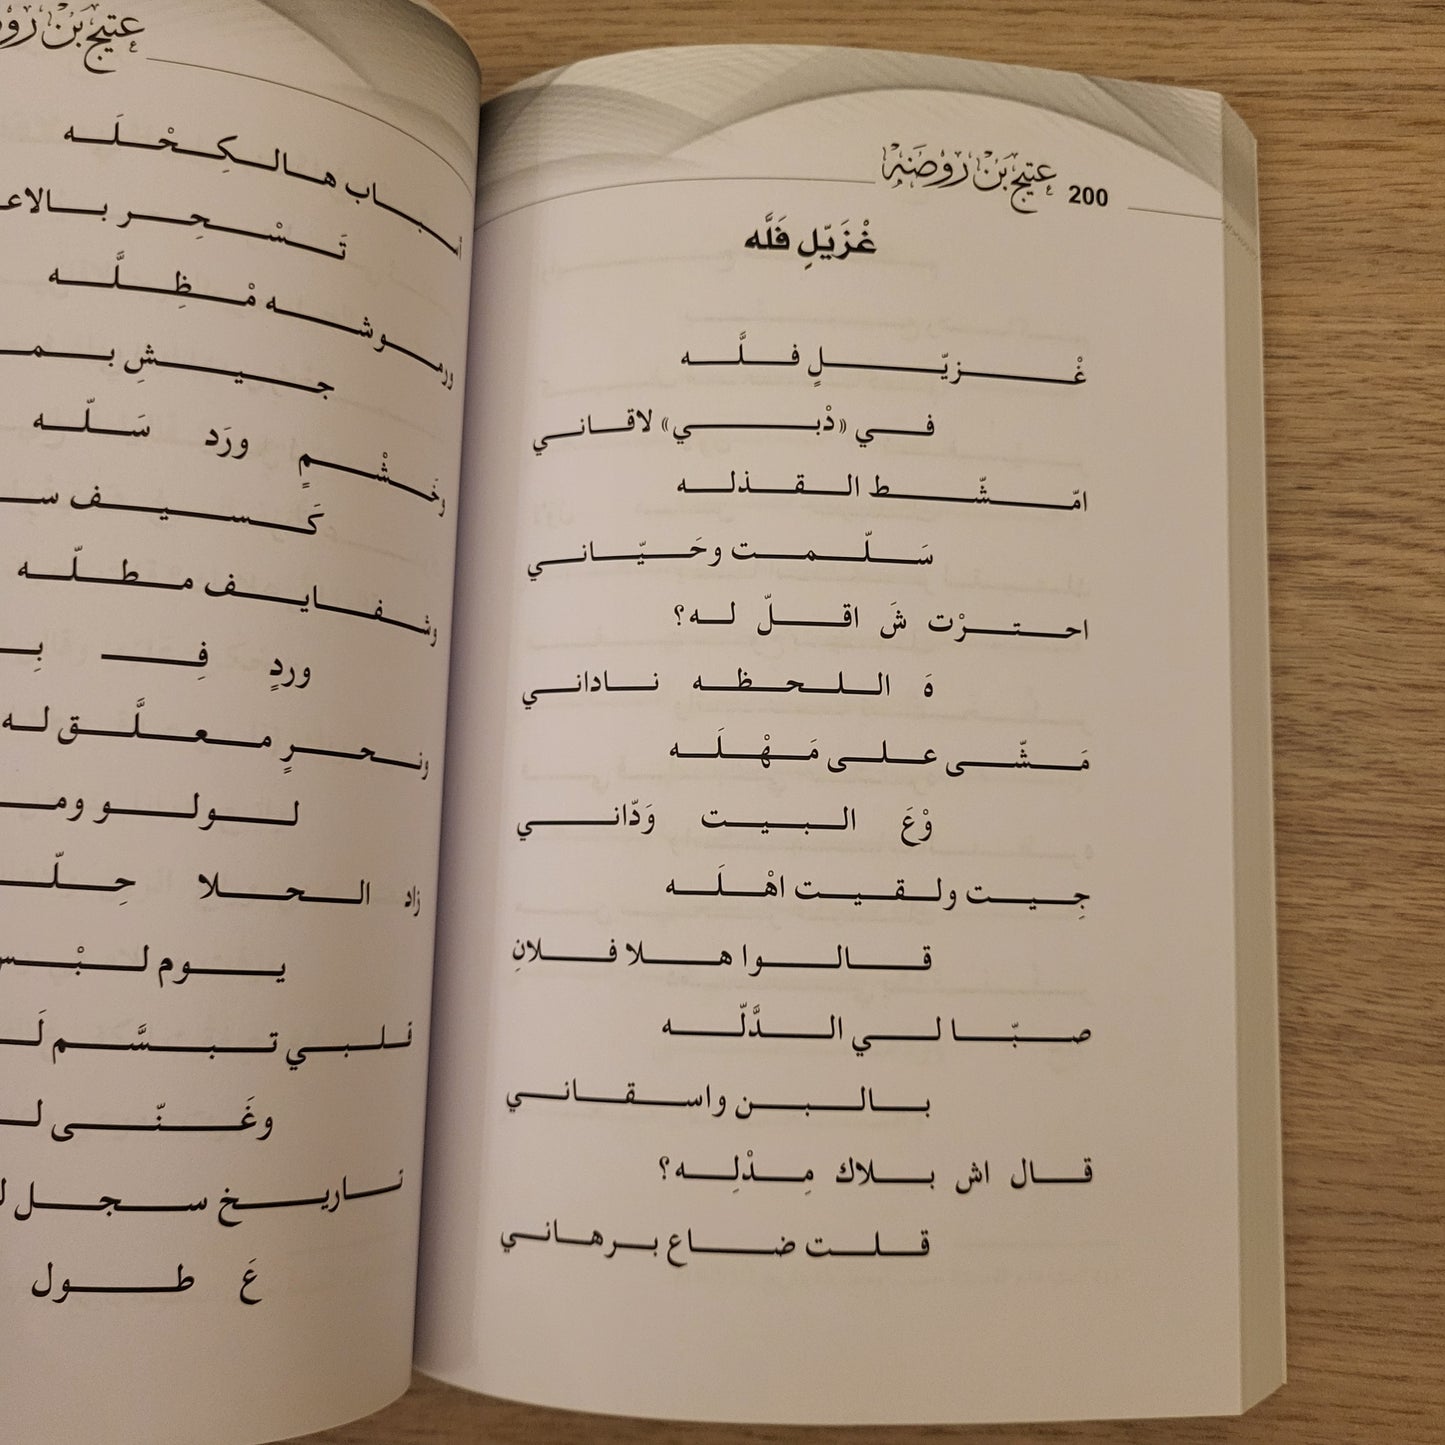 200 عتيج بن روضه
غْزَيّلِ فَلَّه
غْزيّلٍ فلَّه
في «دْبي» لاقاني
امّشّط القذله
سَلّمت وحَيّاني
احترْت شَ اقلّ له؟
هَ اللحظه ناداني
مَشّى على مَهْلَه
وْعَ البيت وَدّاني
جِيت ولقيت اهْلَه
قالوا هلا فلانِ
صبّا لي الدَّلّه
بالبن واسقاني
قال اش بلاك مِدْلِه؟
قلت ضاع برهاني
عتيج بن
هالكِحْلَه
تَسْحِر
ورموشه مْظِلَّه
جيشِ
وخَشْمٍ ورَد سَلّه
كَسيف
وشفايف مطلّه
وردٍ فِ
ونحرٍ معلَّق له
لولو
زاد الحلا
يوم
قلبي تبسَّم
وغَنّى
تاريخ سجل
عَ طول